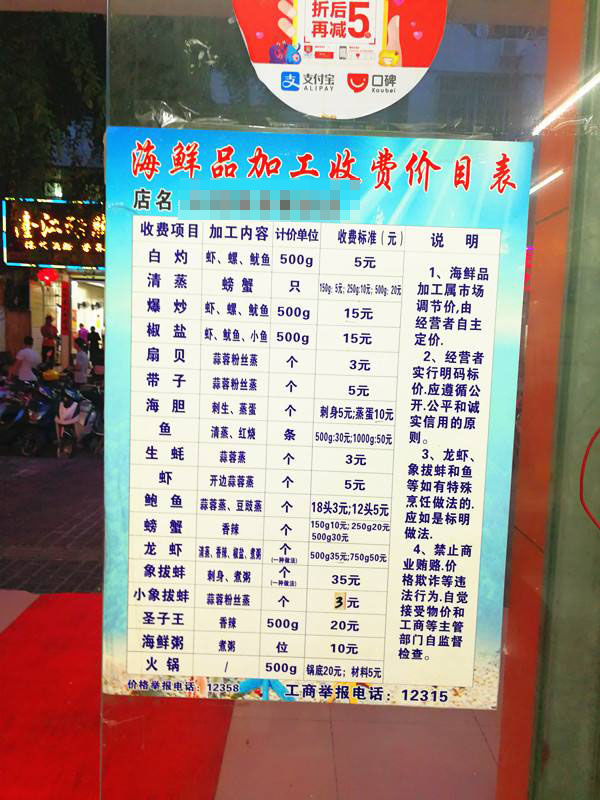 折后
再减5
支付宝
ALIPAY
口碑
Koubei
海鲜品加工收费价目表
店名
收费项目 加工内容 计价单位 收费标准(元) 说 明
白灼 虾、螺、鱿鱼 500g 5元
清蒸 螃蟹 只 150g: 5元; 250g:10元; 500g: 20元
爆炒 虾、螺、鱿鱼 500g 15元
椒盐 虾、鱿鱼、小鱼 500g 15元
扇贝 蒜蓉粉丝蒸 个 3元
带子 蒜蓉粉丝蒸 个 5元
海胆 刺生、蒸蛋 个 刺身5元;蒸蛋10元
鱼 清蒸、红烧 条 500g:30元;1000g:50元
生蚝 蒜蓉蒸 个 3元
虾 开边蒜蓉蒸 个 5元
鲍鱼 蒜蓉蒸、豆豉蒸 个 18头3元;12头5元
螃蟹 香辣 个 150g10元; 250g20元
500g30元
龙虾 清蒸、香辣、椒盐、煮粥 个(一种做法) 500g35元;750g50元
象拔蚌 刺身、煮粥 个(一种做法) 35元
小象拔蚌 蒜蓉粉丝蒸 个 3元
圣子王 香辣 500g 20元
海鲜粥 煮粥 位 10元
火锅 / 500g 锅底20元; 材料5元
1、海鲜品
加工属市场
调节价,由
经营者自主
定价.
2、经营者
实行明码标
价.应遵循公
开.公平和诚
实信用的原
则。
3、龙虾、
象拔蚌和鱼
等如有特殊
烹饪做法的.
应如是标明
做法.
4、禁止商
业贿赂.价
格欺诈等违
法行为.自觉
接受物价和
工商等主管
部门自监督
检查。
价格举报电话: 12358 工商举报电话: 12315